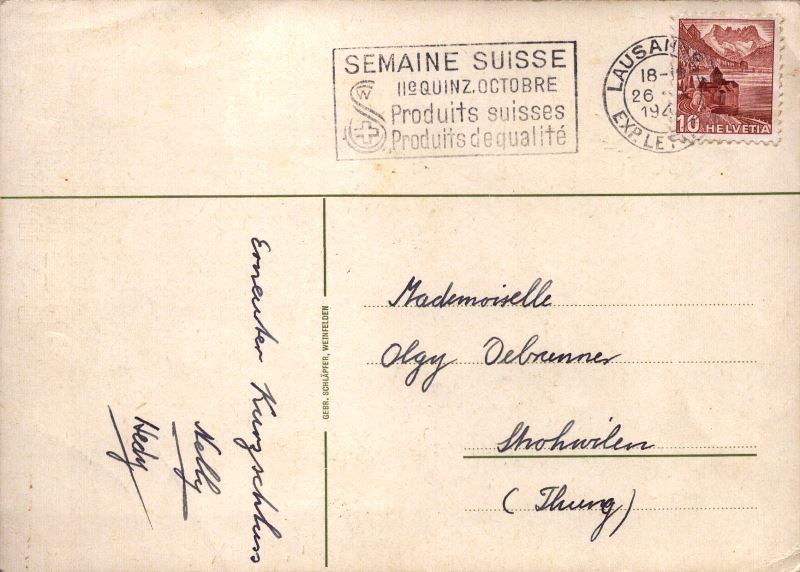 SEMAINE SUISSE
IIº QUINZ. OCTOBRE
Produits suisses
Produits de qualité
LAUSANNE
18-
26
194
EXP. LE
10 HELVETIA
Mademoiselle
Olgy Debrunner
Strohwilen
(Thurg)
GEBR. SCHLÄPFER, WEINFELDEN
Erneuter Kurzschluss
Nelly
Hedy